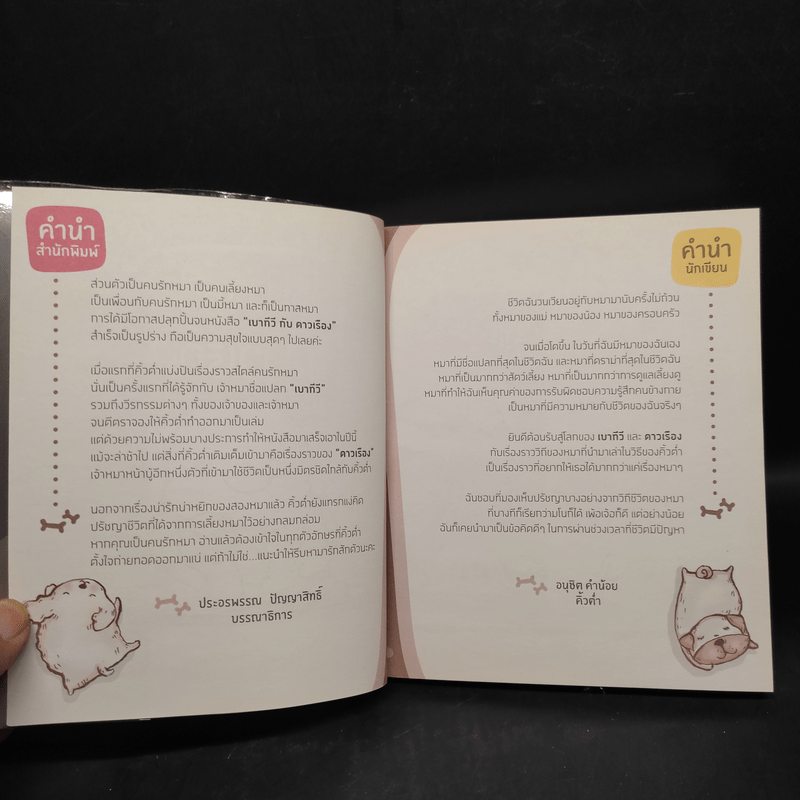 คำนำ
สำนักพิมพ์
ส่วนตัวเป็นคนรักหมา เป็นคนเลี้ยงหมา
เป็นเพื่อนกับคนรักหมา เป็นมี้หมา และก็เป็นทาสหมา
การได้มีโอกาสปลุกปั้นจนหนังสือ "เบาทีวี กับ ดาวเรือง"
สำเร็จเป็นรูปร่าง ถือเป็นความสุขใจแบบสุดๆ ไปเลยค่ะ
เมื่อแรกที่คิ้วต่ำแบ่งปันเรื่องราวสไตล์คนรักหมา
นั่นเป็นครั้งแรกที่ได้รู้จักกับ เจ้าหมาชื่อแปลก "เบาทีวี"
รวมถึงวีรกรรมต่างๆ ทั้งของเจ้าของและเจ้าหมา
จนตีตราจองให้คิ้วต่ำทำออกมาเป็นเล่ม
แต่ด้วยความไม่พร้อมบางประการทำให้หนังสือมาเสร็จเอาในปีนี้
แม้จะล่าช้าไป แต่สิ่งที่คิ้วต่ำเติมเต็มเข้ามาคือเรื่องราวของ "ดาวเรือง"
เจ้าหมาหน้าบู้อีกหนึ่งตัวที่เข้ามาใช้ชีวิตเป็นหนึ่งมิตรชิดใกล้กับคิ้วต่ำ
นอกจากเรื่องน่ารักน่าหยิกของสองหมาแล้ว คิ้วต่ำยังแทรกแง่คิด
ปรัชญาชีวิตที่ได้จากการเลี้ยงหมาไว้อย่างกลมกล่อม
หากคุณเป็นคนรักหมา อ่านแล้วต้องเข้าใจในทุกตัวอักษรที่คิ้วต่ำ
ตั้งใจถ่ายทอดออกมาแน่ แต่ถ้าไม่ใช่...แนะนำให้รีบหามารักสักตัวนะคะ
ประอรพรรณ ปัญญาสิทธิ์
บรรณาธิการ
คำนำ
นักเขียน
ชีวิตฉันวนเวียนอยู่กับหมามานับครั้งไม่ถ้วน
ทั้งหมาของแม่ หมาของน้อง หมาของครอบครัว
จนเมื่อโตขึ้น ในวันที่ฉันมีหมาของฉันเอง
หมาที่มีชื่อแปลกที่สุดในชีวิตฉัน และหมาที่ดราม่าที่สุดในชีวิตฉัน
หมาที่เป็นมากกว่าสัตว์เลี้ยง หมาที่เป็นมากกว่าการดูแลเลี้ยงดู
หมาที่ทำให้ฉันเห็นคุณค่าของการรับผิดชอบความรู้สึกคนข้างกาย
เป็นหมาที่มีความหมายกับชีวิตของฉันจริงๆ
ยินดีต้อนรับสู่โลกของ เบาทีวี และ ดาวเรือง
กับเรื่องราววิถีของหมาที่นำมาเล่าในวิธีของคิ้วต่ำ
เป็นเรื่องราวที่อยากให้เธอได้มากกว่าแค่เรื่องหมาๆ
ฉันชอบที่มองเห็นปรัชญาบางอย่างจากวิถีชีวิตของหมา
ที่บางทีก็เรียกว่ามโนก็ได้ เพ้อเจ้อก็ดี แต่อย่างน้อย
ฉันก็เคยนำมาเป็นข้อคิดดีๆ ในการผ่านช่วงเวลาที่ชีวิตมีปัญหา
อนุชิต คำน้อย
คิ้วต่ำ